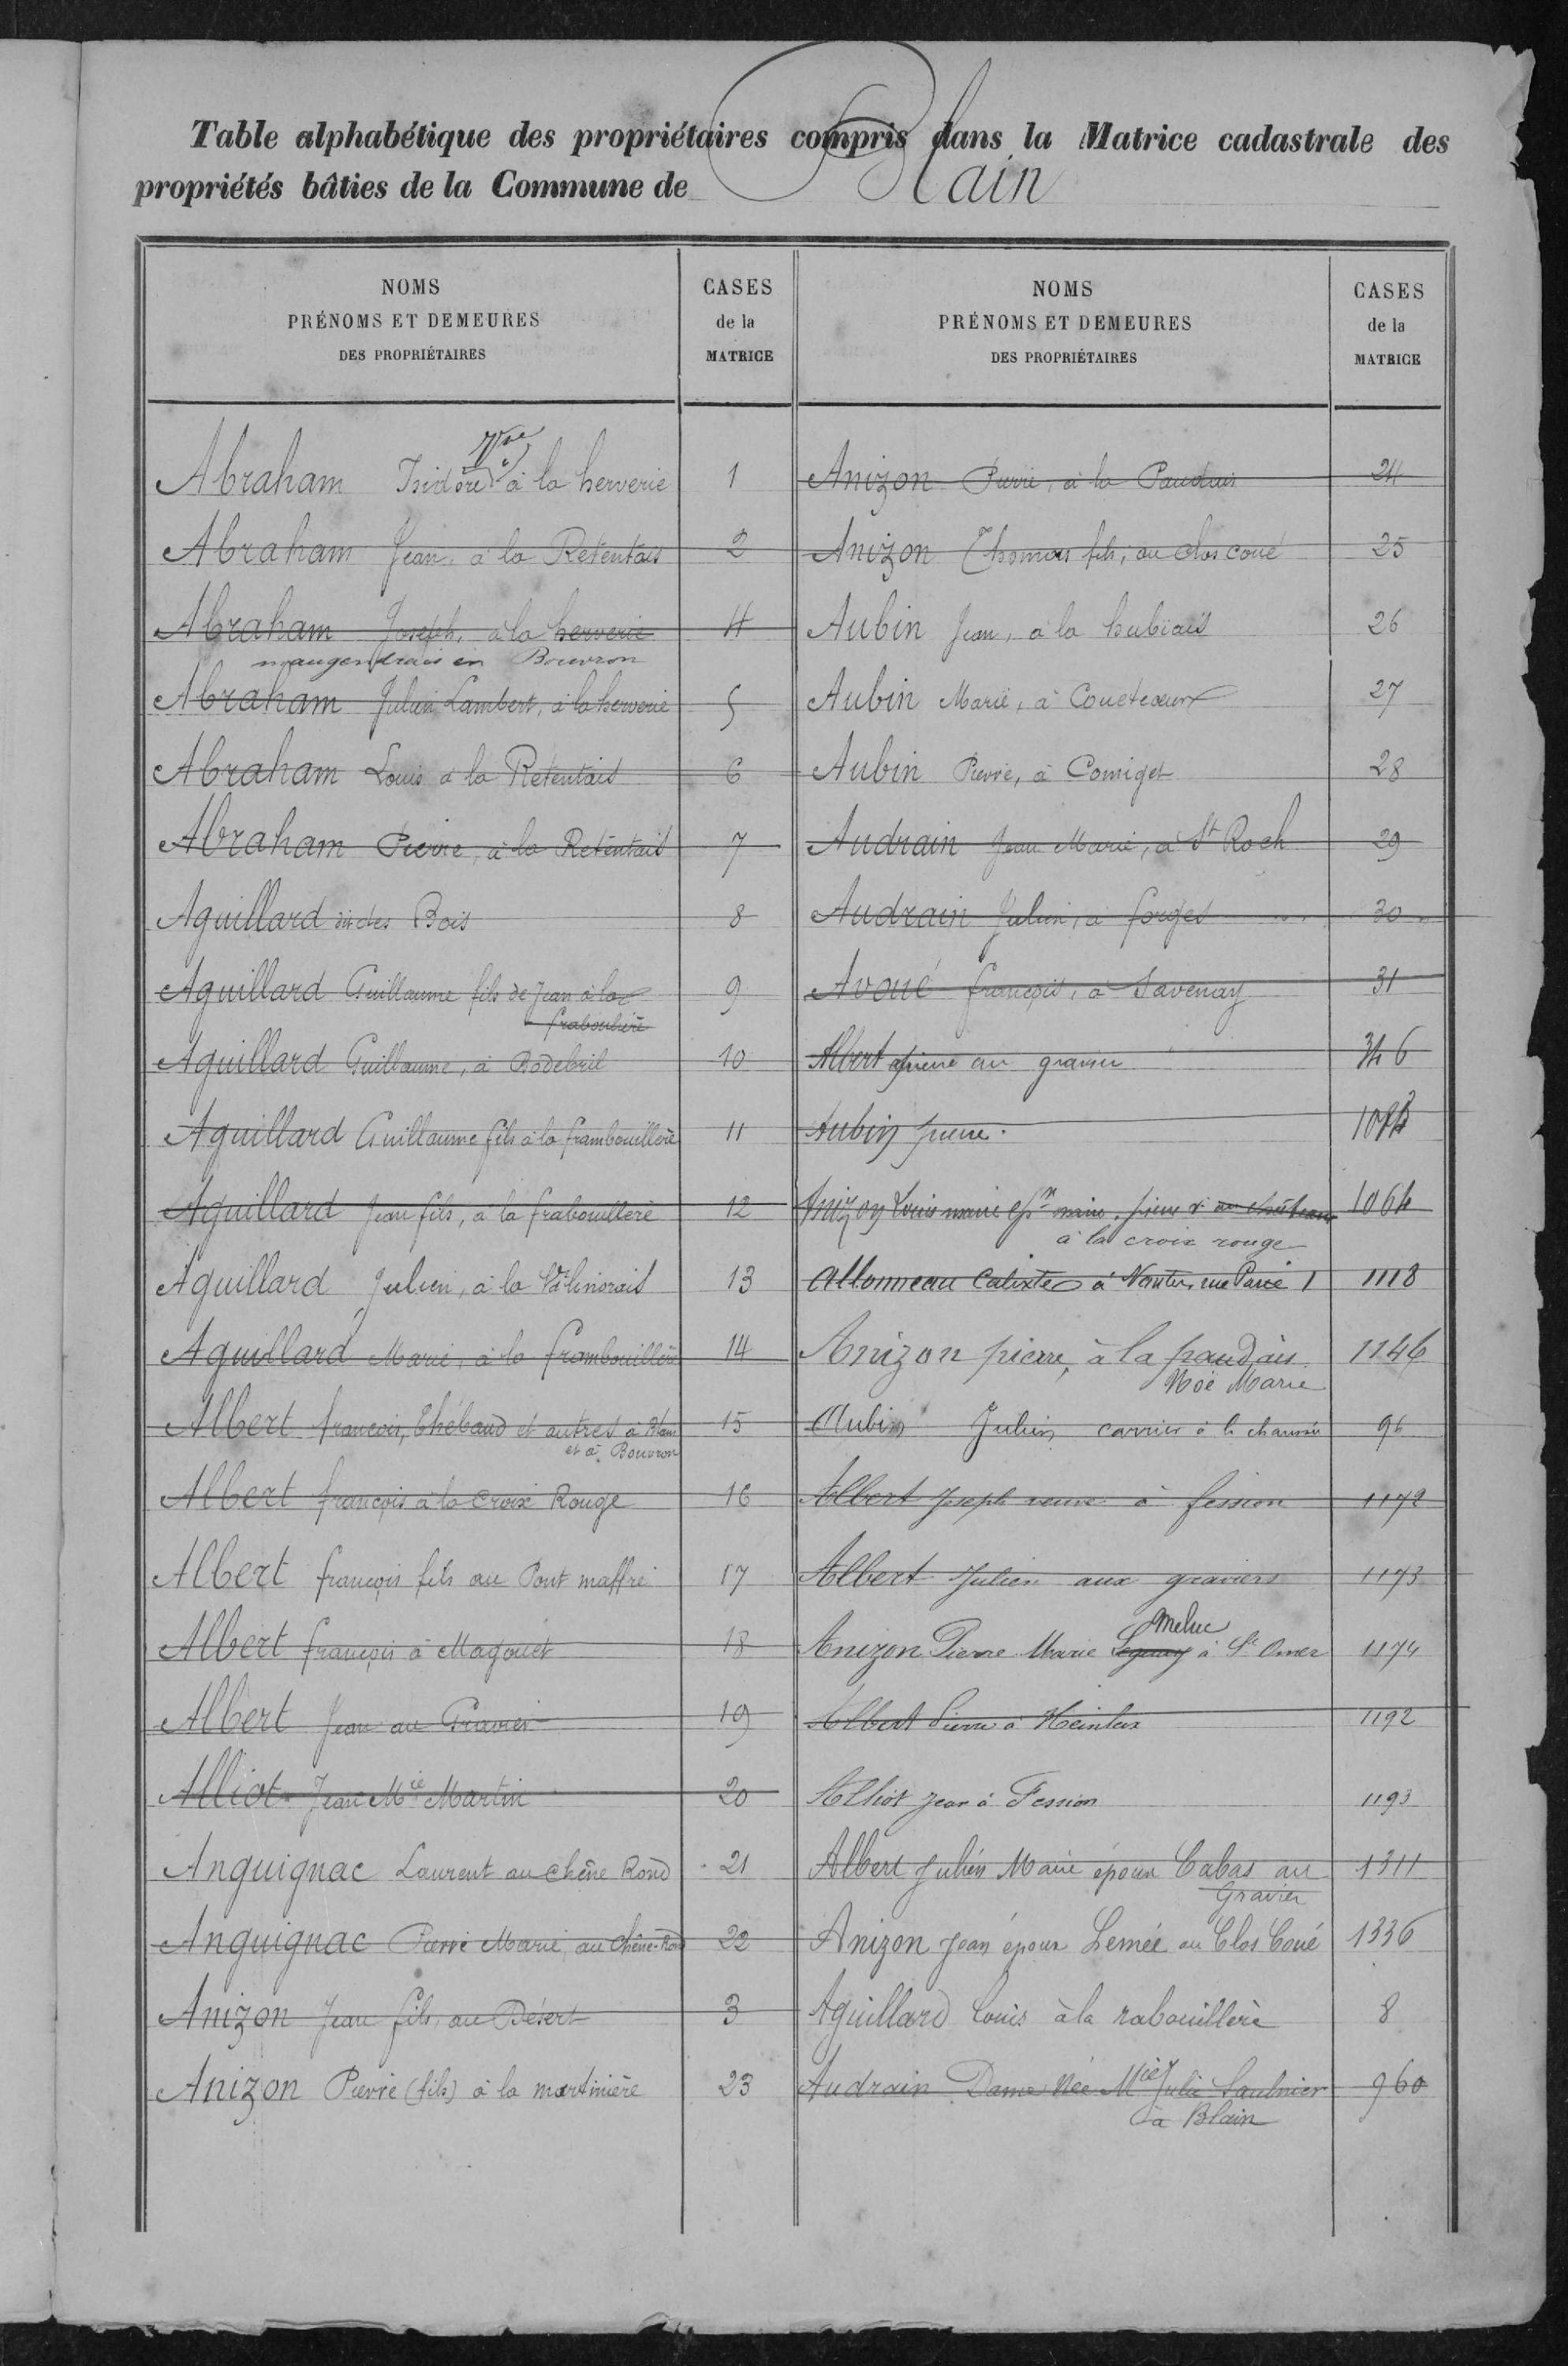 Table alphabétique des propriétaires compris dans la Matrice cadastrale des
propriétés bâties de la Commune de Blain
NOMS
PRÉNOMS ET DEMEURES
DES PROPRIÉTAIRES
CASES
de la
MATRICE
Abraham Isidore Vve à la herverie 1
Abraham Jean, à la Retentais 2
Abraham Joseph, à la herverie 4
maugendrais en Bouvron
Abraham Julien Lambert, à la herverie 5
Abraham Louis à la Retentais 6
Abraham Pierre, à la Retentais 7
Aguillard dit des Bois 8
Aguillard Guillaume fils de Jean à la 9
frabouliere
Aguillard Guillaume, à Bodebril 10
Aguillard Guillaume fils à la frambouillere 11
Aguillard Jean fils, à la frabouillere 12
Aguillard Julien, à la 13
Aguillard Marie, à la frambouillere 14
Albert françois, Thébaud et autres à Blain 15
et à Bouvron
Albert françois à la Croix Rouge 16
Albert françois fils au Pont maffré 17
Albert françois à Magouet 18
Albert Jean au Gravier 19
Alliot Jean Mie Martin 20
Anguignac Laurent au chêne Rond 21
Anguignac Pierre Marie, au Chêne-Rond 22
Anizon Jean fils, au Désert 3
Anizon Pierre (fils) à la martinière 23
NOMS
PRÉNOMS ET DEMEURES
DES PROPRIÉTAIRES
CASES
de la
MATRICE
Anizon Pierre, à la Paudais 24
Anizon Thomas fils, au clos coué 25
Aubin Jean, à la hubiais 26
Aubin Marie, à Couetcoeur 27
Aubin Pierre, à Comiget 28
Audrain Jean Marie, à St Roch 29
Audrain Julien, à forges 30
Avoué françois, à Savenay 31
Albert pierre au gravier 346
Aubin pierre
Anizon Louis marie 1064
à la croix rouge
Allonneau Calixte à Nantes, rue Paré 1 1118
Anizon pierre, à la paudais 1146
Noë Marie
Aubin Julien carrier à la chaussée 96
Albert Joseph veuve à fession 1172
Albert Julien aux graviers 1173
Anizon Pierre Marie Meluc à St Omer 1174
Albert Pierre à Heinlex 1192
Alliot Jean à Fession 1193
Albert Julien Marie époux Cabas au 1311
Gravier
Anizon Jean époux Lemée au Clos Coué 1336
Aguillard Louis à la rabouillère 8
Audrain Dame née Mie Julie Saulnier 960
à Blain